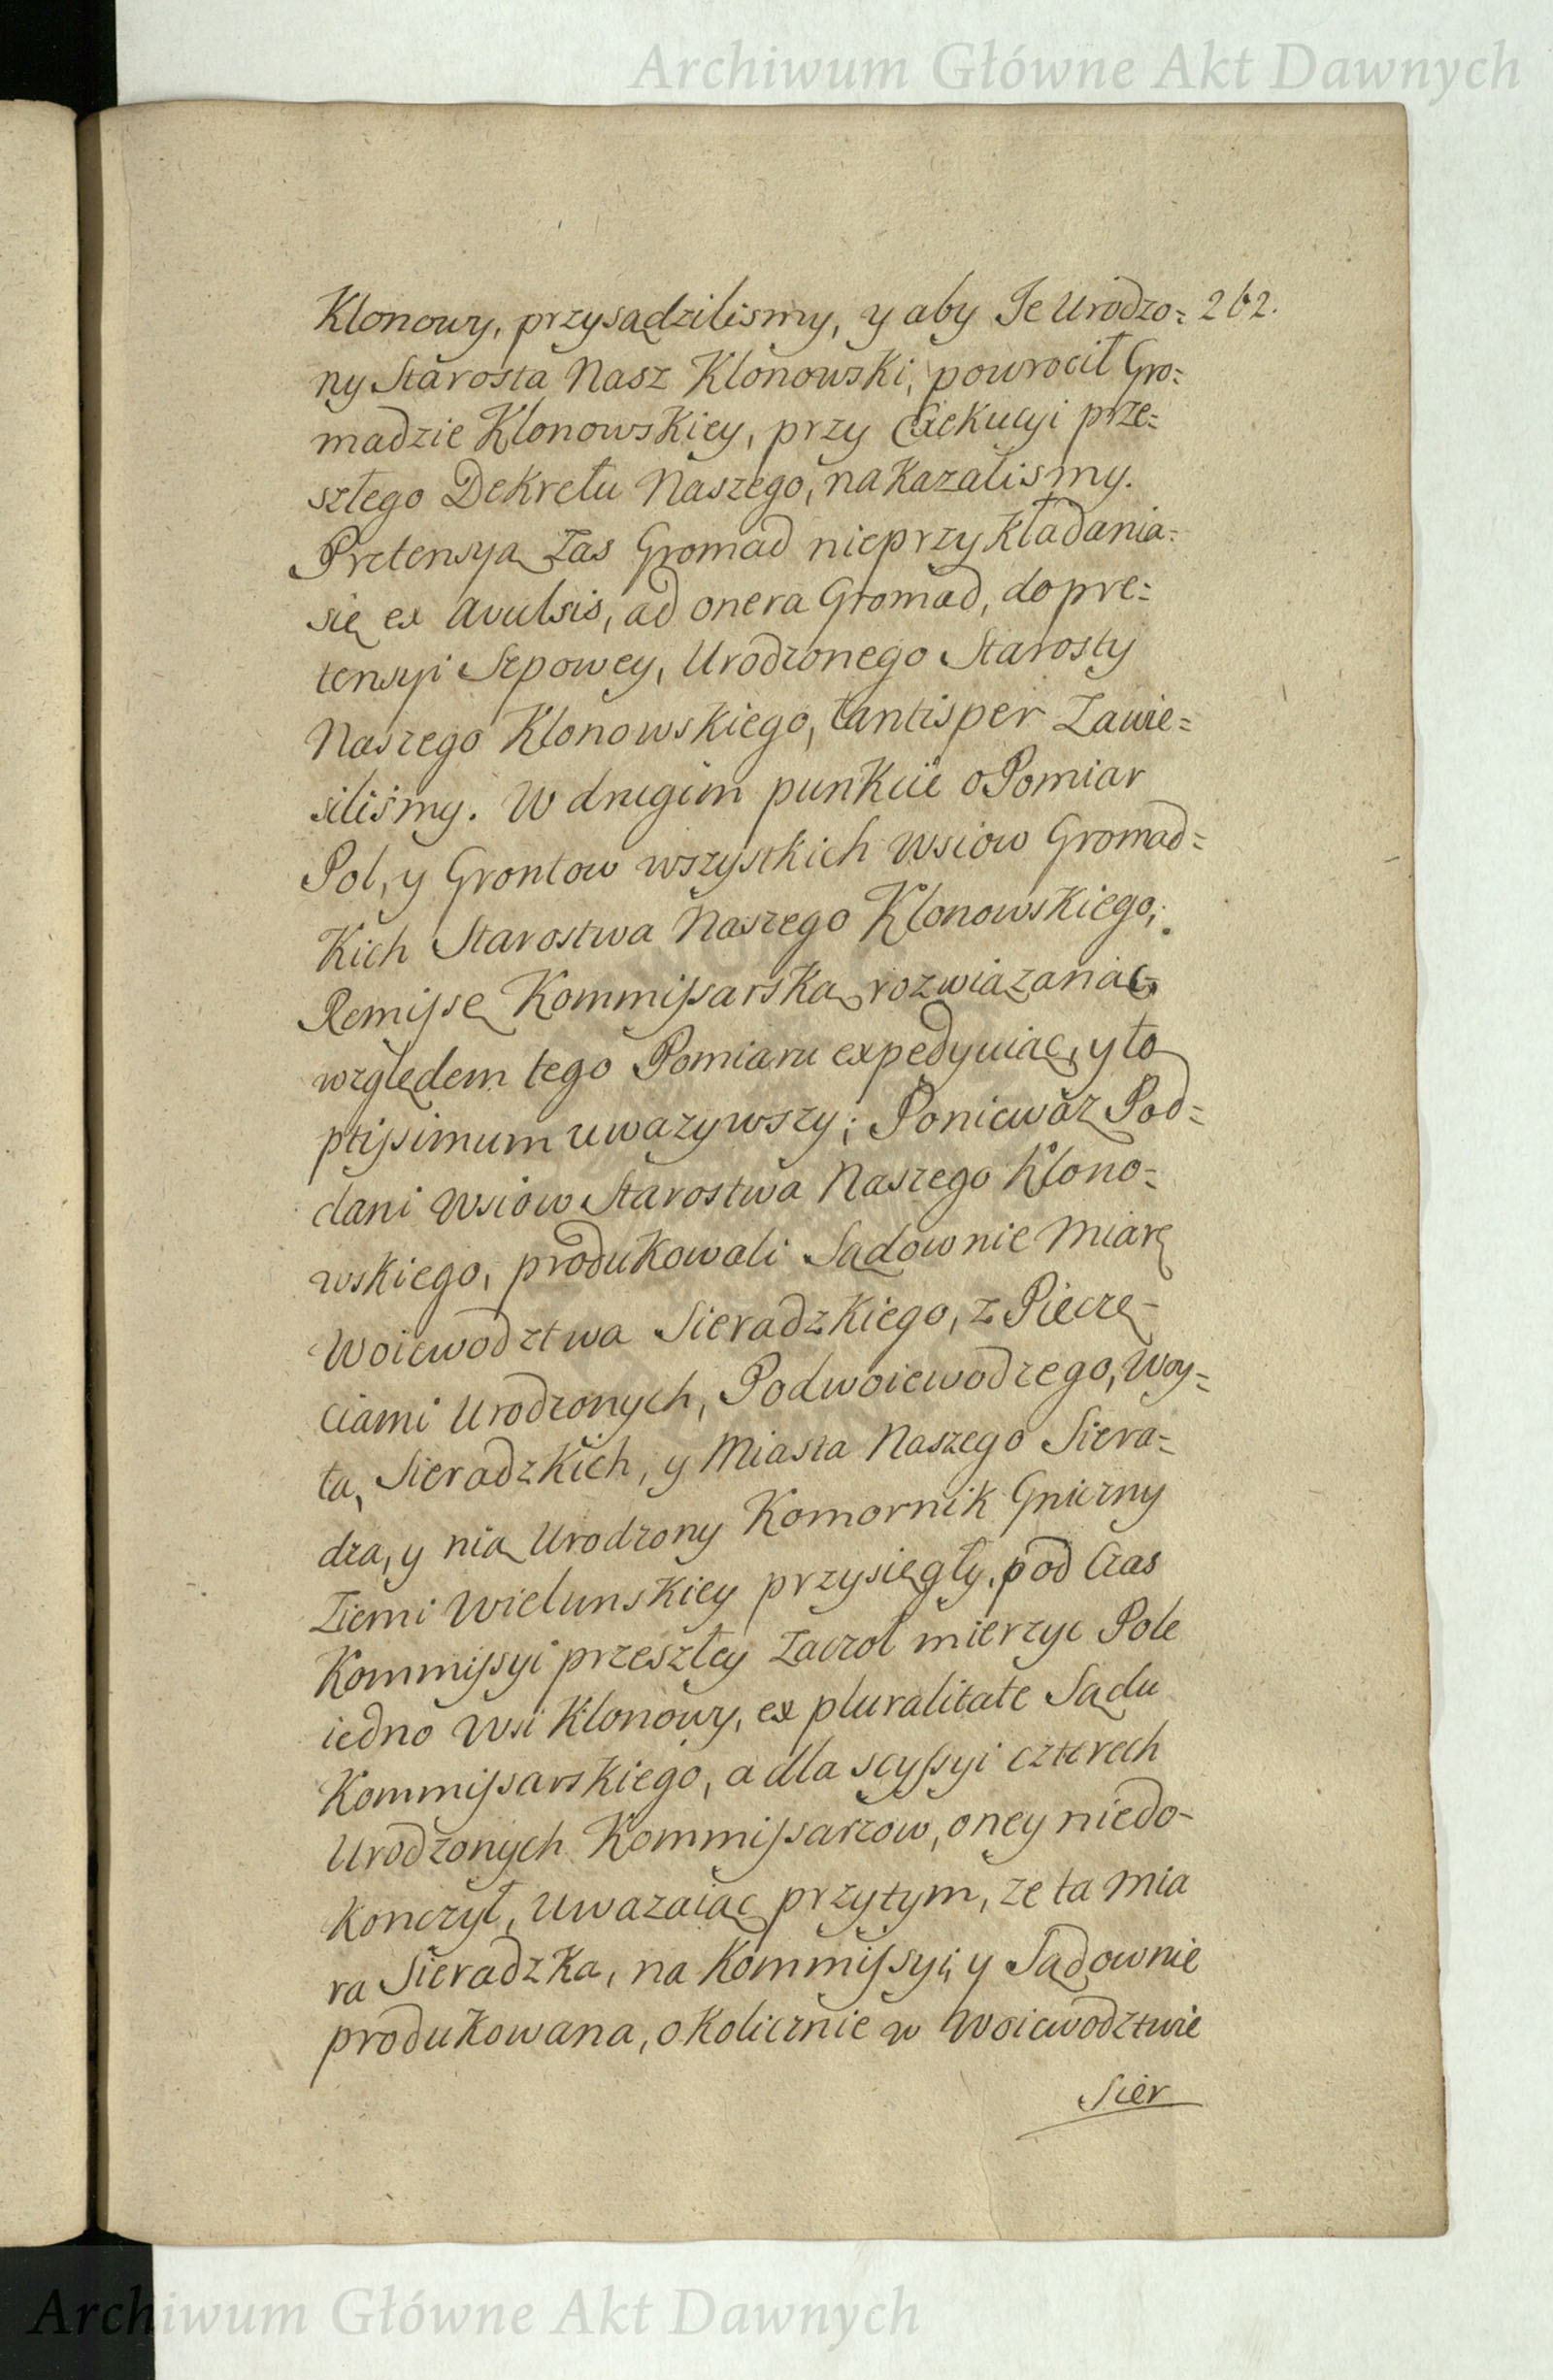 Archiwum Główne Akt Dawnych
Klonowy, przysądzilismy, y aby Je Urodzo= 262.
ny Starosta Nasz Klonowski, powrocił Gro=
madzie Klonowskiey, przy Exekucyi prze=
szłego Dekretu Naszego, nakazalismy.
Pretensyą zas Gromad nieprzykładania=
się ex avulsis, ad onera Gromad, do pre=
tensyi Sepowey, Urodzonego Starosty
Naszego Klonowskiego, tantisper zawie=
siliśmy. W drugim punkcie o Pomiar
Pol, y Grontow wszystkich wsiow Gromad=
kich Starostwa Naszego Klonowskiego;
Remissę Kommissarską rozwiązaniac,
względem tego Pomiaru expedyuiąc, y to
ptissimum uwazywszy; Poniewaz Pod=
dani wsiow Starostwa Naszego Klono=
wskiego, produkowali Sądownie Miarę
Woiewodztwa Sieradzkiego, z Pieczę-
ciami Urodzonych, Podwoiewodzego, Woy=
ta, Sieradzkich, y Miasta Naszego Siera=
dza, y nią Urodzony Komornik Gniczny
Ziemi Wielunskiey przysięgły, pod Czas
Kommissyi przeszłey zaczoł mierzyc Pole
iedno Wsi Klonowy, ex pluralitate Sądu
Kommissarskiego, a dla scyssyi czterech
Urodzonych Kommissarzow, oney niedo-
konczył, uwazaiąc przytym, ze ta Mia
ra Sieradzka, na Kommissyi, y Sądownie
produkowana, okolicznie w Woiewodztwie
Sier
Archiwum Główne Akt Dawnych